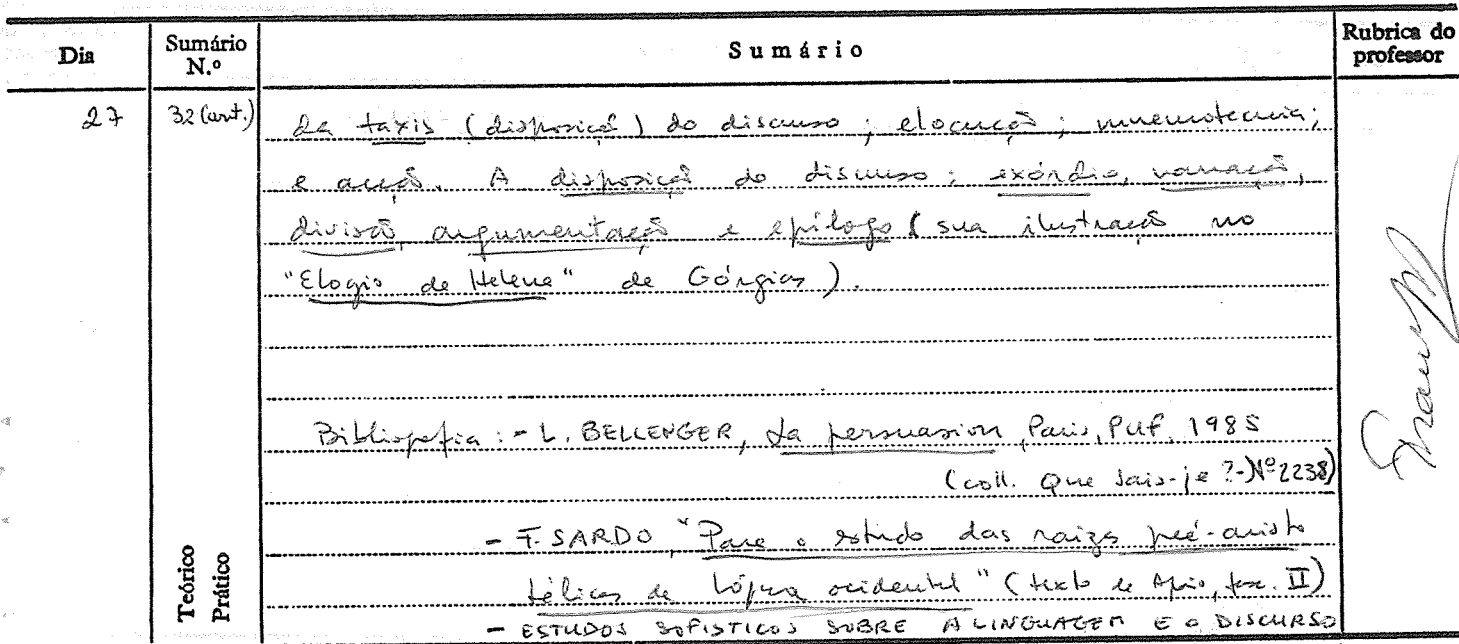 Dia
Sumário N.º
Sumário
Rubrica do professor
27
32 (cont.)
da taxis (disposição) do discurso; elocução; mnemotecnia;
e acção. A disposição do discurso: exórdio, narração,
divisão, argumentação e epílogo (sua ilustração no
"Elogio de Helena" de Górgias).
Bibliografia: - L. BELLENGER, La persuasion, Paris, PUF, 1985
(coll. Que sais-je ?-Nº2238)
- F. SARDO, "Para o estudo das raizes pré-aristo
télicas da lógica ocidental" (texto de Apoio, fasc. II)
- ESTUDOS SOFISTICOS SOBRE A LINGUAGEM E O DISCURSO
Teórico
Prático